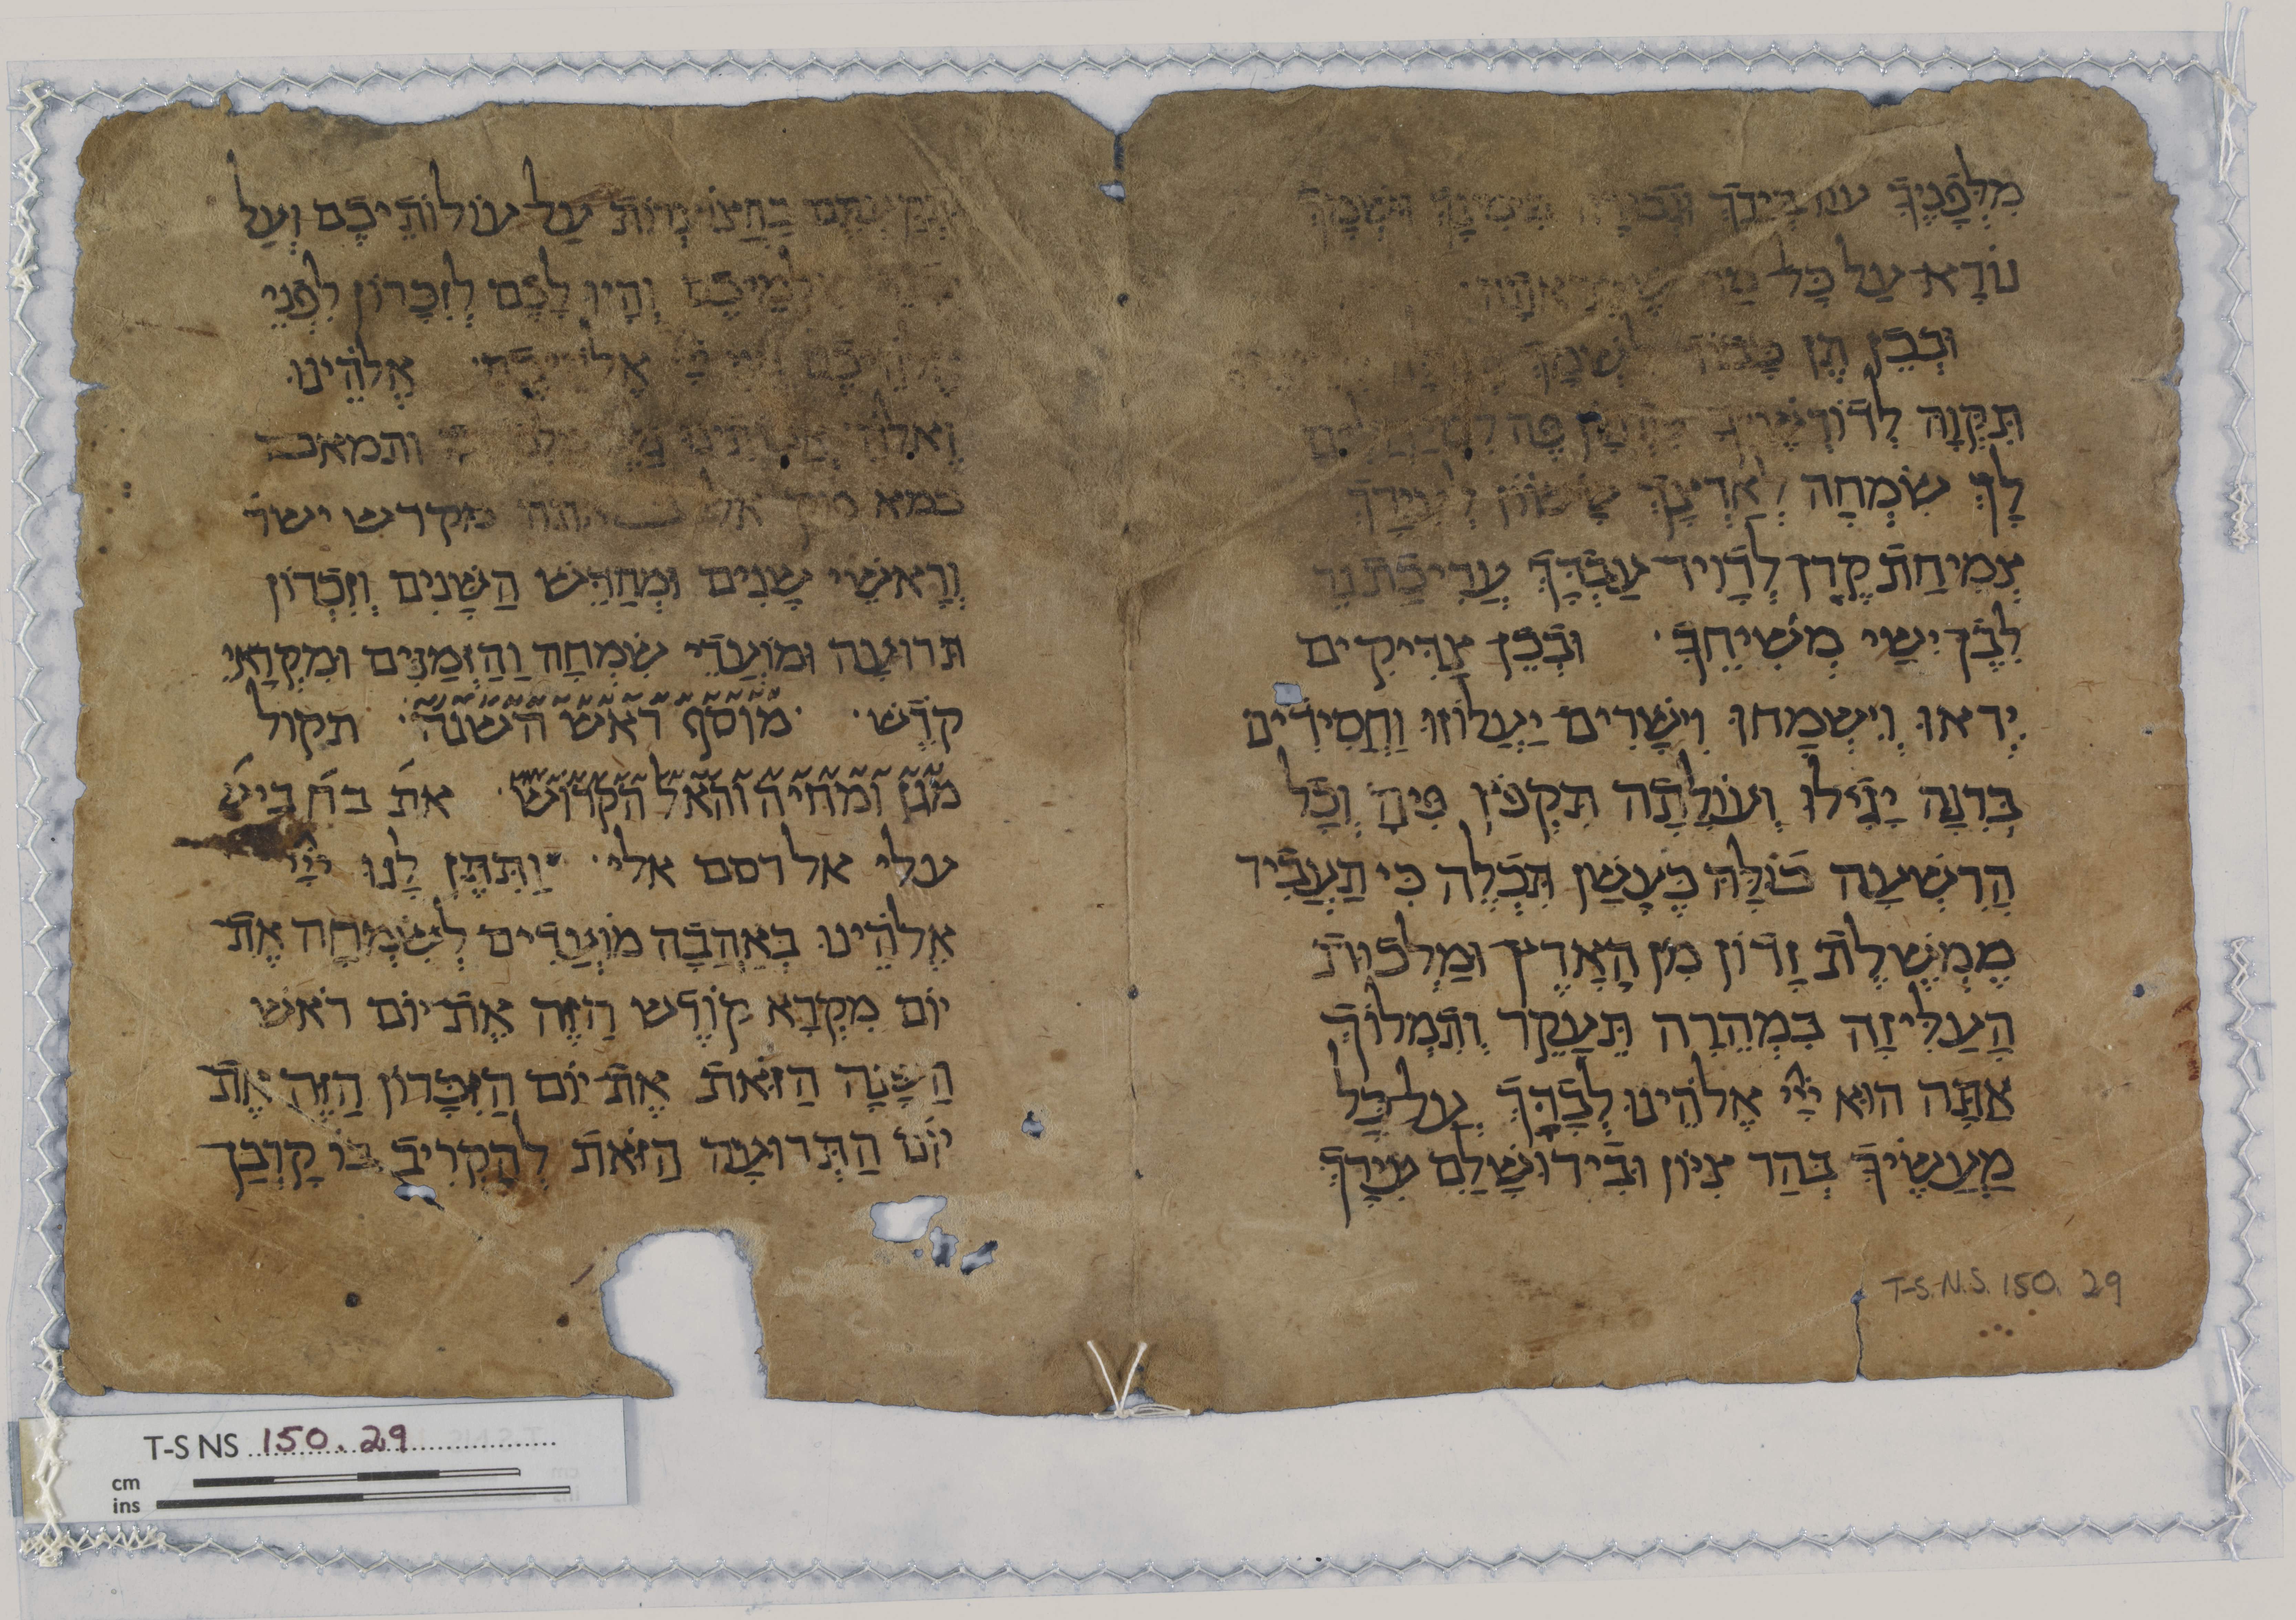 מִלְּפָנֶיךָ עוז בְּיָדְךָ וּגְבוּרָה בִּימִינֶךָ וְשִׁמְךָ
נוֹרָא עַל כָּל מַה שֶּׁבָּרָאתָ
וּבְכֵן תֵּן כָּבוֹד לְשִׁמְךָ
תִּקְוָה לְדוֹרְשֶׁיךָ פֶּה לַמְיַחֲלִים
לָךְ שִׂמְחָה לְאַרְצָךְ שָׂשׂוֹן לְעִירָךְ
צְמִיחַת קֶרֶן לְדָוִיד עַבְדָּךְ עֲרִיכַת נֵר
לְבֶן יִשַׁי מְשִׁיחֶךָ וּבְכֵן צַדִּיקִים
יִרְאוּ וְיִשְׂמָחוּ וִישָׁרִים יַעֲלוֹזוּ וַחֲסִידִים
בְּרִנָּה יָגִילוּ וְעוֹלָתָה תִקְפֹּץ פִּיהָ וְכָל
הָרִשְׁעָה כוּלָּהּ כֶּעָשָׁן תִּכְלֶה כִּי תַעֲבִיר
מֶמְשֶׁלֶת זָדוֹן מִן הָאָרֶץ וּמַלְכוּת
הָעַלִּיזָה בִּמְהֵרָה תֵּעָקֵר וְתִמְלוֹךְ
אַתָּה הוּא יְיָ אֱלֹהֵינוּ לְבַדָּךְ עַל כָּל
מַעֲשֶׂיךָ בְּהַר צִיּוֹן וּבִירוּשָׁלַם עִירָךְ
T-S.N.S. 150. 29
בַּחֲצוֹצְרוֹת עַל עוֹלוֹתֵיכֶם וְעַל
שַׁלְמֵיכֶם וְהָיוּ לָכֶם לְזִכָּרוֹן לִפְנֵי
אֱלֹהֵיכֶם אֲנִי יְיָ אֱלֹהֵיכֶם אֱלֹהֵינוּ
וֵאלֹהֵי אֲבוֹתֵינוּ ותמאמה
כמא אתה מקדש ישר
וְרָאשֵׁי שָׁנִים וּמְחַדֵּשׁ הַשָּׁנִים וְזִכְרוֹן
תרוּעָה וּמוֹעֲדֵי שִׂמְחָה וְהַזְּמַנִּים וּמִקְרָאֵי
קֹדֶשׁ מוסף ראש השנה תקול
מגן ומחיה והאל הקדוש את בח בישׂ
עלי אלרסם אלי וַתִּתֶּן לָנוּ יְיָ
אֱלֹהֵינוּ בְּאַהֲבָה מוֹעֲדִים לְשִׂמְחָה אֶת
יוֹם מִקְרָא קוֹדֶשׁ הַזֶּה אֶת יוֹם רֹאשׁ
הַשָּׁנָה הַזֹּאת אֶת יוֹם הַזִּכָּרוֹן הַזֶּה אֶת
יוֹם הַתְּרוּעָה הַזֹּאת לְהַקְרִיב בּוֹ קָרְבַּן
T-S NS 150.29
cm
ins